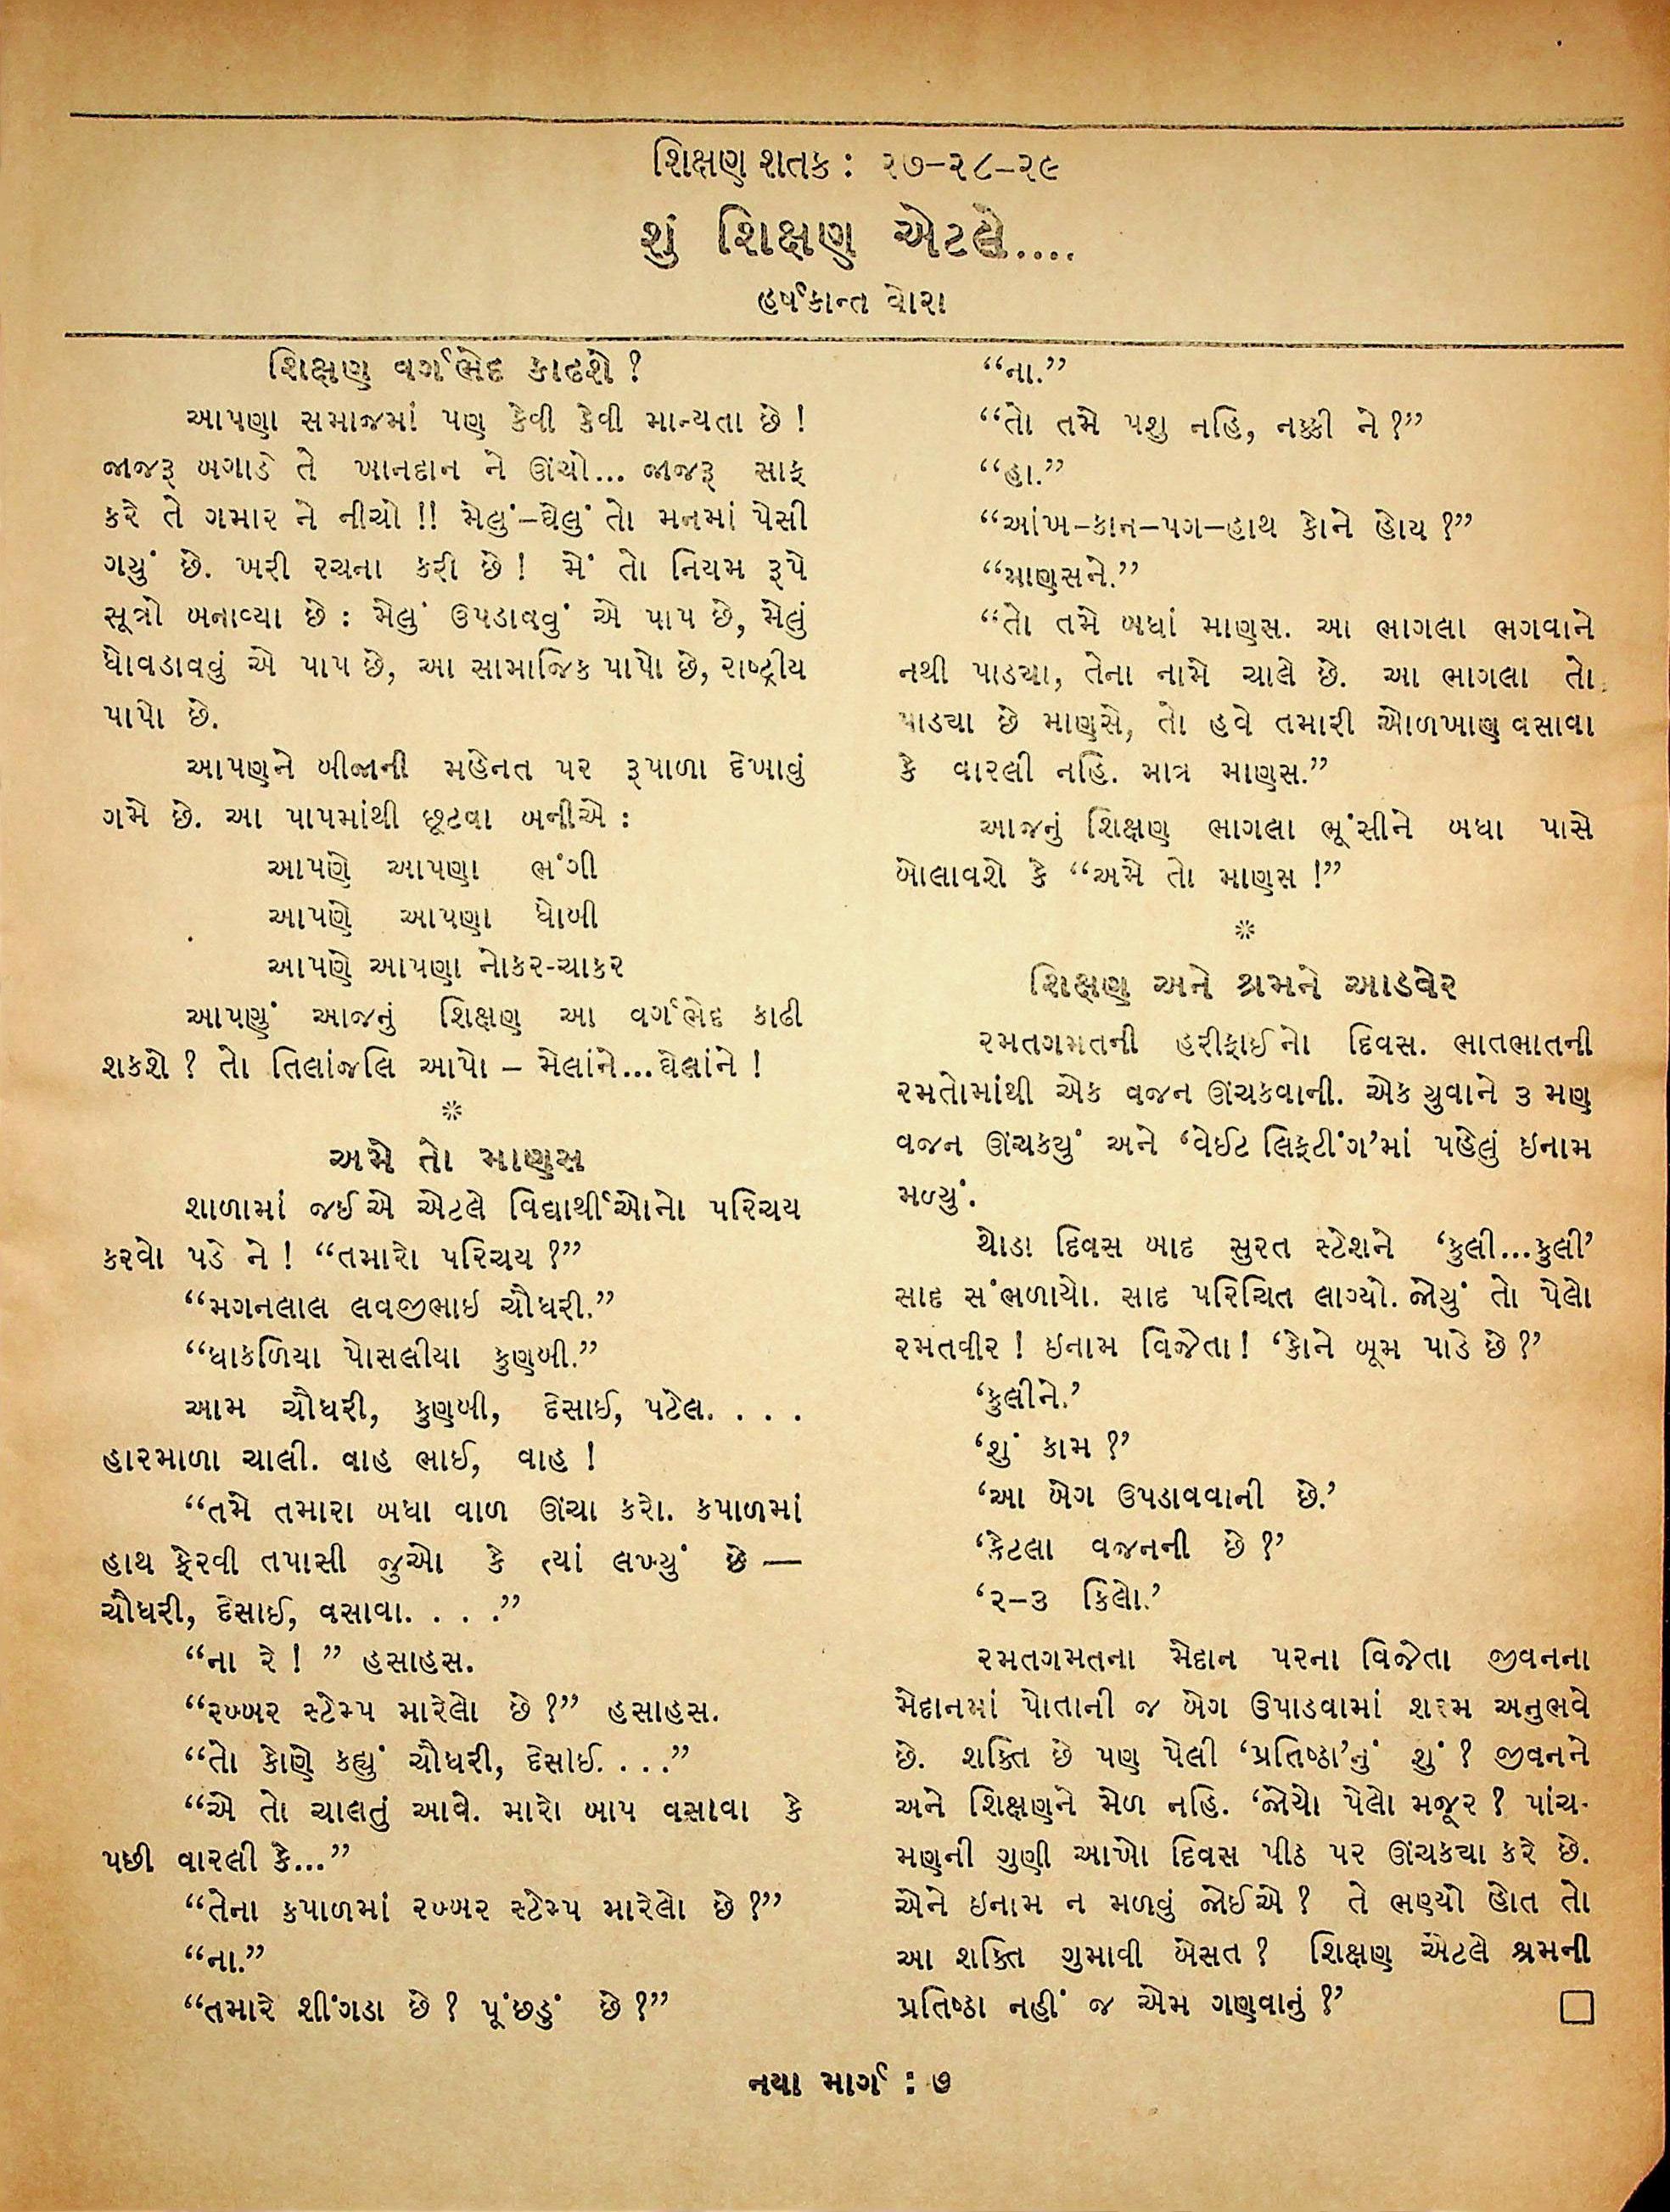 શિક્ષણ શતક : ૨૭–૨૮–૨૯
શું શિક્ષણ એટલે....
હર્ષકાન્ત વોરા
શિક્ષણ વર્ગભેદ કાઢશે ?
આપણા સમાજમાં પણ કેવી કેવી માન્યતા છે !
જાજરૂ બગાડે તે ખાનદાન ને ઊંચો... જાજરૂ સાફ
કરે તે ગમાર ને નીચો !! મેલું–ઘેલું તો મનમાં પેસી
ગયું છે. ખરી રચના કરી છે ! મેં તો નિયમ રૂપે
સૂત્રો બનાવ્યા છે : મેલું ઉપડાવવું એ પાપ છે, મેલું
ધોવડાવવું એ પાપ છે, આ સામાજિક પાપો છે, રાષ્ટ્રીય
પાપો છે.
આપણને બીજાની મહેનત પર રૂપાળા દેખાવું
ગમે છે. આ પાપમાંથી છૂટવા બનીએ :
આપણે આપણા ભંગી
આપણે આપણા ધોબી
આપણે આપણા નોકર-ચાકર
આપણું આજનું શિક્ષણ આ વર્ગભેદ કાઢી
શકશે ? તો તિલાંજલિ આપો – મેલાંને...ઘેલાંને !
※
અમે તો માણસ
શાળામાં જઈએ એટલે વિદ્યાર્થીઓનો પરિચય
કરવો પડે ને ! “તમારો પરિચય ?”
“મગનલાલ લવજીભાઇ ચૌધરી.”
“ધાકળિયા પોસલીયા કુણબી.”
આમ ચૌધરી, કુણબી, દેસાઈ, પટેલ. . . .
હારમાળા ચાલી. વાહ ભાઈ, વાહ !
“તમે તમારા બધા વાળ ઊંચા કરો. કપાળમાં
હાથ ફેરવી તપાસી જુઓ કે ત્યાં લખ્યું છે —
ચૌધરી, દેસાઈ, વસાવા. . . .”
“ના રે ! ” હસાહસ.
“રબ્બર સ્ટેમ્પ મારેલો છે ?” હસાહસ.
“તો કોણે કહ્યું ચૌધરી, દેસાઈ. . . .”
“એ તો ચાલતું આવે. મારો બાપ વસાવા કે
પછી વારલી કે...”
“તેના કપાળમાં રબ્બર સ્ટેમ્પ મારેલો છે ?”
“ના.”
“તમારે શીંગડા છે ? પૂંછડું છે ?”
“ના.”
“તો તમે પશુ નહિ, નક્કી ને ?”
“હા.”
“આંખ–કાન–પગ–હાથ કોને હોય ?”
“માણસને.”
“તો તમે બધાં માણસ. આ ભાગલા ભગવાને
નથી પાડ્યા, તેના નામે ચાલે છે. આ ભાગલા તો
પાડ્યા છે માણસે, તો હવે તમારી ઓળખાણ વસાવા
કે વારલી નહિ. માત્ર માણસ.”
આજનું શિક્ષણ ભાગલા ભૂંસીને બધા પાસે
બોલાવશે કે “અમે તો માણસ !”
※
શિક્ષણ અને શ્રમને આડવેર
રમતગમતની હરીફાઈનો દિવસ. ભાતભાતની
રમતોમાંથી એક વજન ઊંચકવાની. એક યુવાને ૩ મણ
વજન ઊંચક્યું અને ‘વેઈટ લિફ્ટીંગ’માં પહેલું ઇનામ
મળ્યું.
થોડા દિવસ બાદ સુરત સ્ટેશને ‘કુલી...કુલી’
સાદ સંભળાયો. સાદ પરિચિત લાગ્યો. જોયું તો પેલો
રમતવીર ! ઇનામ વિજેતા ! ‘કોને બૂમ પાડે છે ?’
‘કુલીને.’
‘શું કામ ?’
‘આ બેગ ઉપડાવવાની છે.’
‘કેટલા વજનની છે ?’
‘૨–૩ કિલો.’
રમતગમતના મેદાન પરના વિજેતા જીવનના
મેદાનમાં પોતાની જ બેગ ઉપાડવામાં શરમ અનુભવે
છે. શક્તિ છે પણ પેલી ‘પ્રતિષ્ઠા’નું શું ? જીવનને
અને શિક્ષણને મેળ નહિ. ‘જોયો પેલો મજૂર ? પાંચ-
મણની ગુણી આખો દિવસ પીઠ પર ઊંચક્યા કરે છે.
એને ઇનામ ન મળવું જોઈએ ? તે ભણ્યો હોત તો
આ શક્તિ ગુમાવી બેસત ? શિક્ષણ એટલે શ્રમની
પ્રતિષ્ઠા નહીં જ એમ ગણવાનું ?’
નયા માર્ગ : ૭